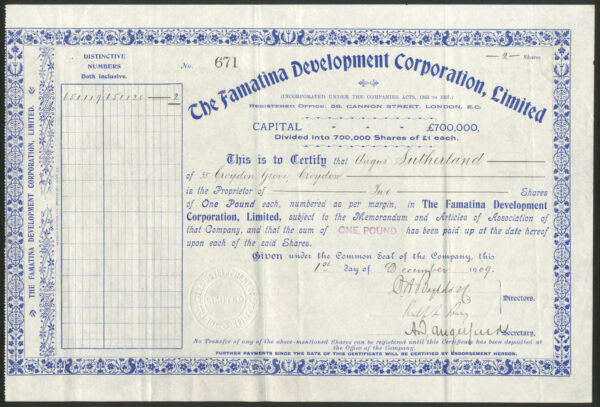 DISTINCTIVE
NUMBERS
Both inclusive.
651119 651120 — 2
THE FAMATINA DEVELOPMENT CORPORATION, LIMITED.
No. 671
— 2 — Shares
The Famatina Development Corporation, Limited
(INCORPORATED UNDER THE COMPANIES ACTS, 1862 TO 1907.)
REGISTERED OFFICE: 56, CANNON STREET, LONDON, E.C.
CAPITAL - - - £700,000,
Divided into 700,000 Shares of £1 each.
This is to Certify that Angus Sutherland
of 35 Croydon Grove, Croydon
is the Proprietor of Two Shares
of One Pound each, numbered as per margin, in The Famatina Development
Corporation, Limited, subject to the Memorandum and Articles of Association of
that Company, and that the sum of ONE POUND has been paid up at the date hereof
upon each of the said Shares.
Given under the Common Seal of the Company, this
1st day of December 1909.
Directors.
Secretary.
No Transfer of any of the above-mentioned Shares can be registered until this Certificate has been deposited at
the Office of the Company.
FURTHER PAYMENTS SINCE THE DATE OF THIS CERTIFICATE WILL BE CERTIFIED BY ENDORSEMENT HEREON.